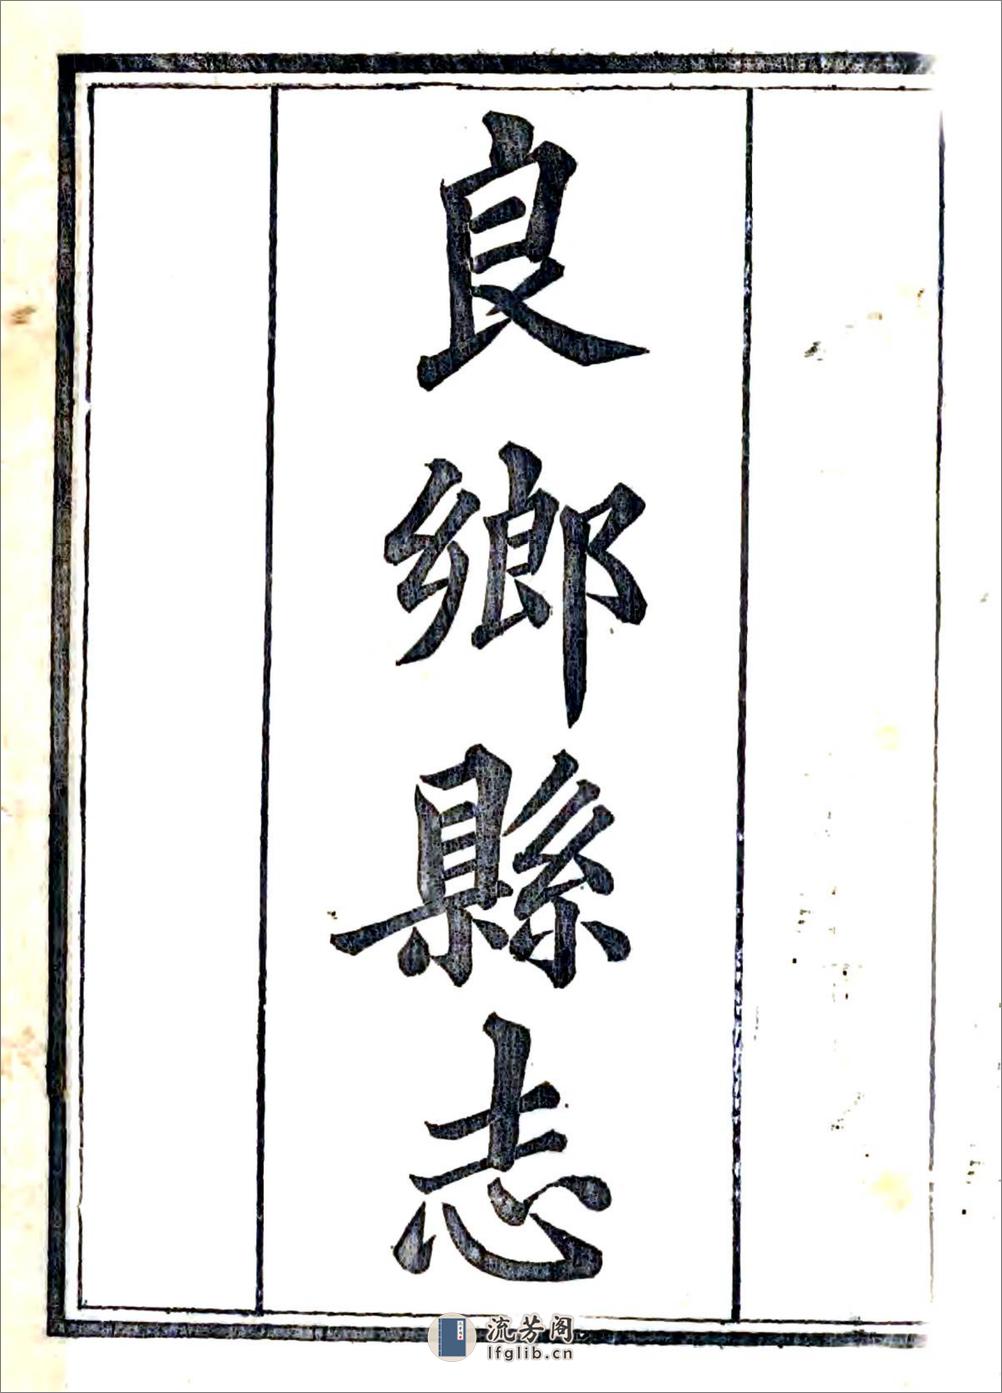 良鄉縣志
流芳阁
lfglib.cn